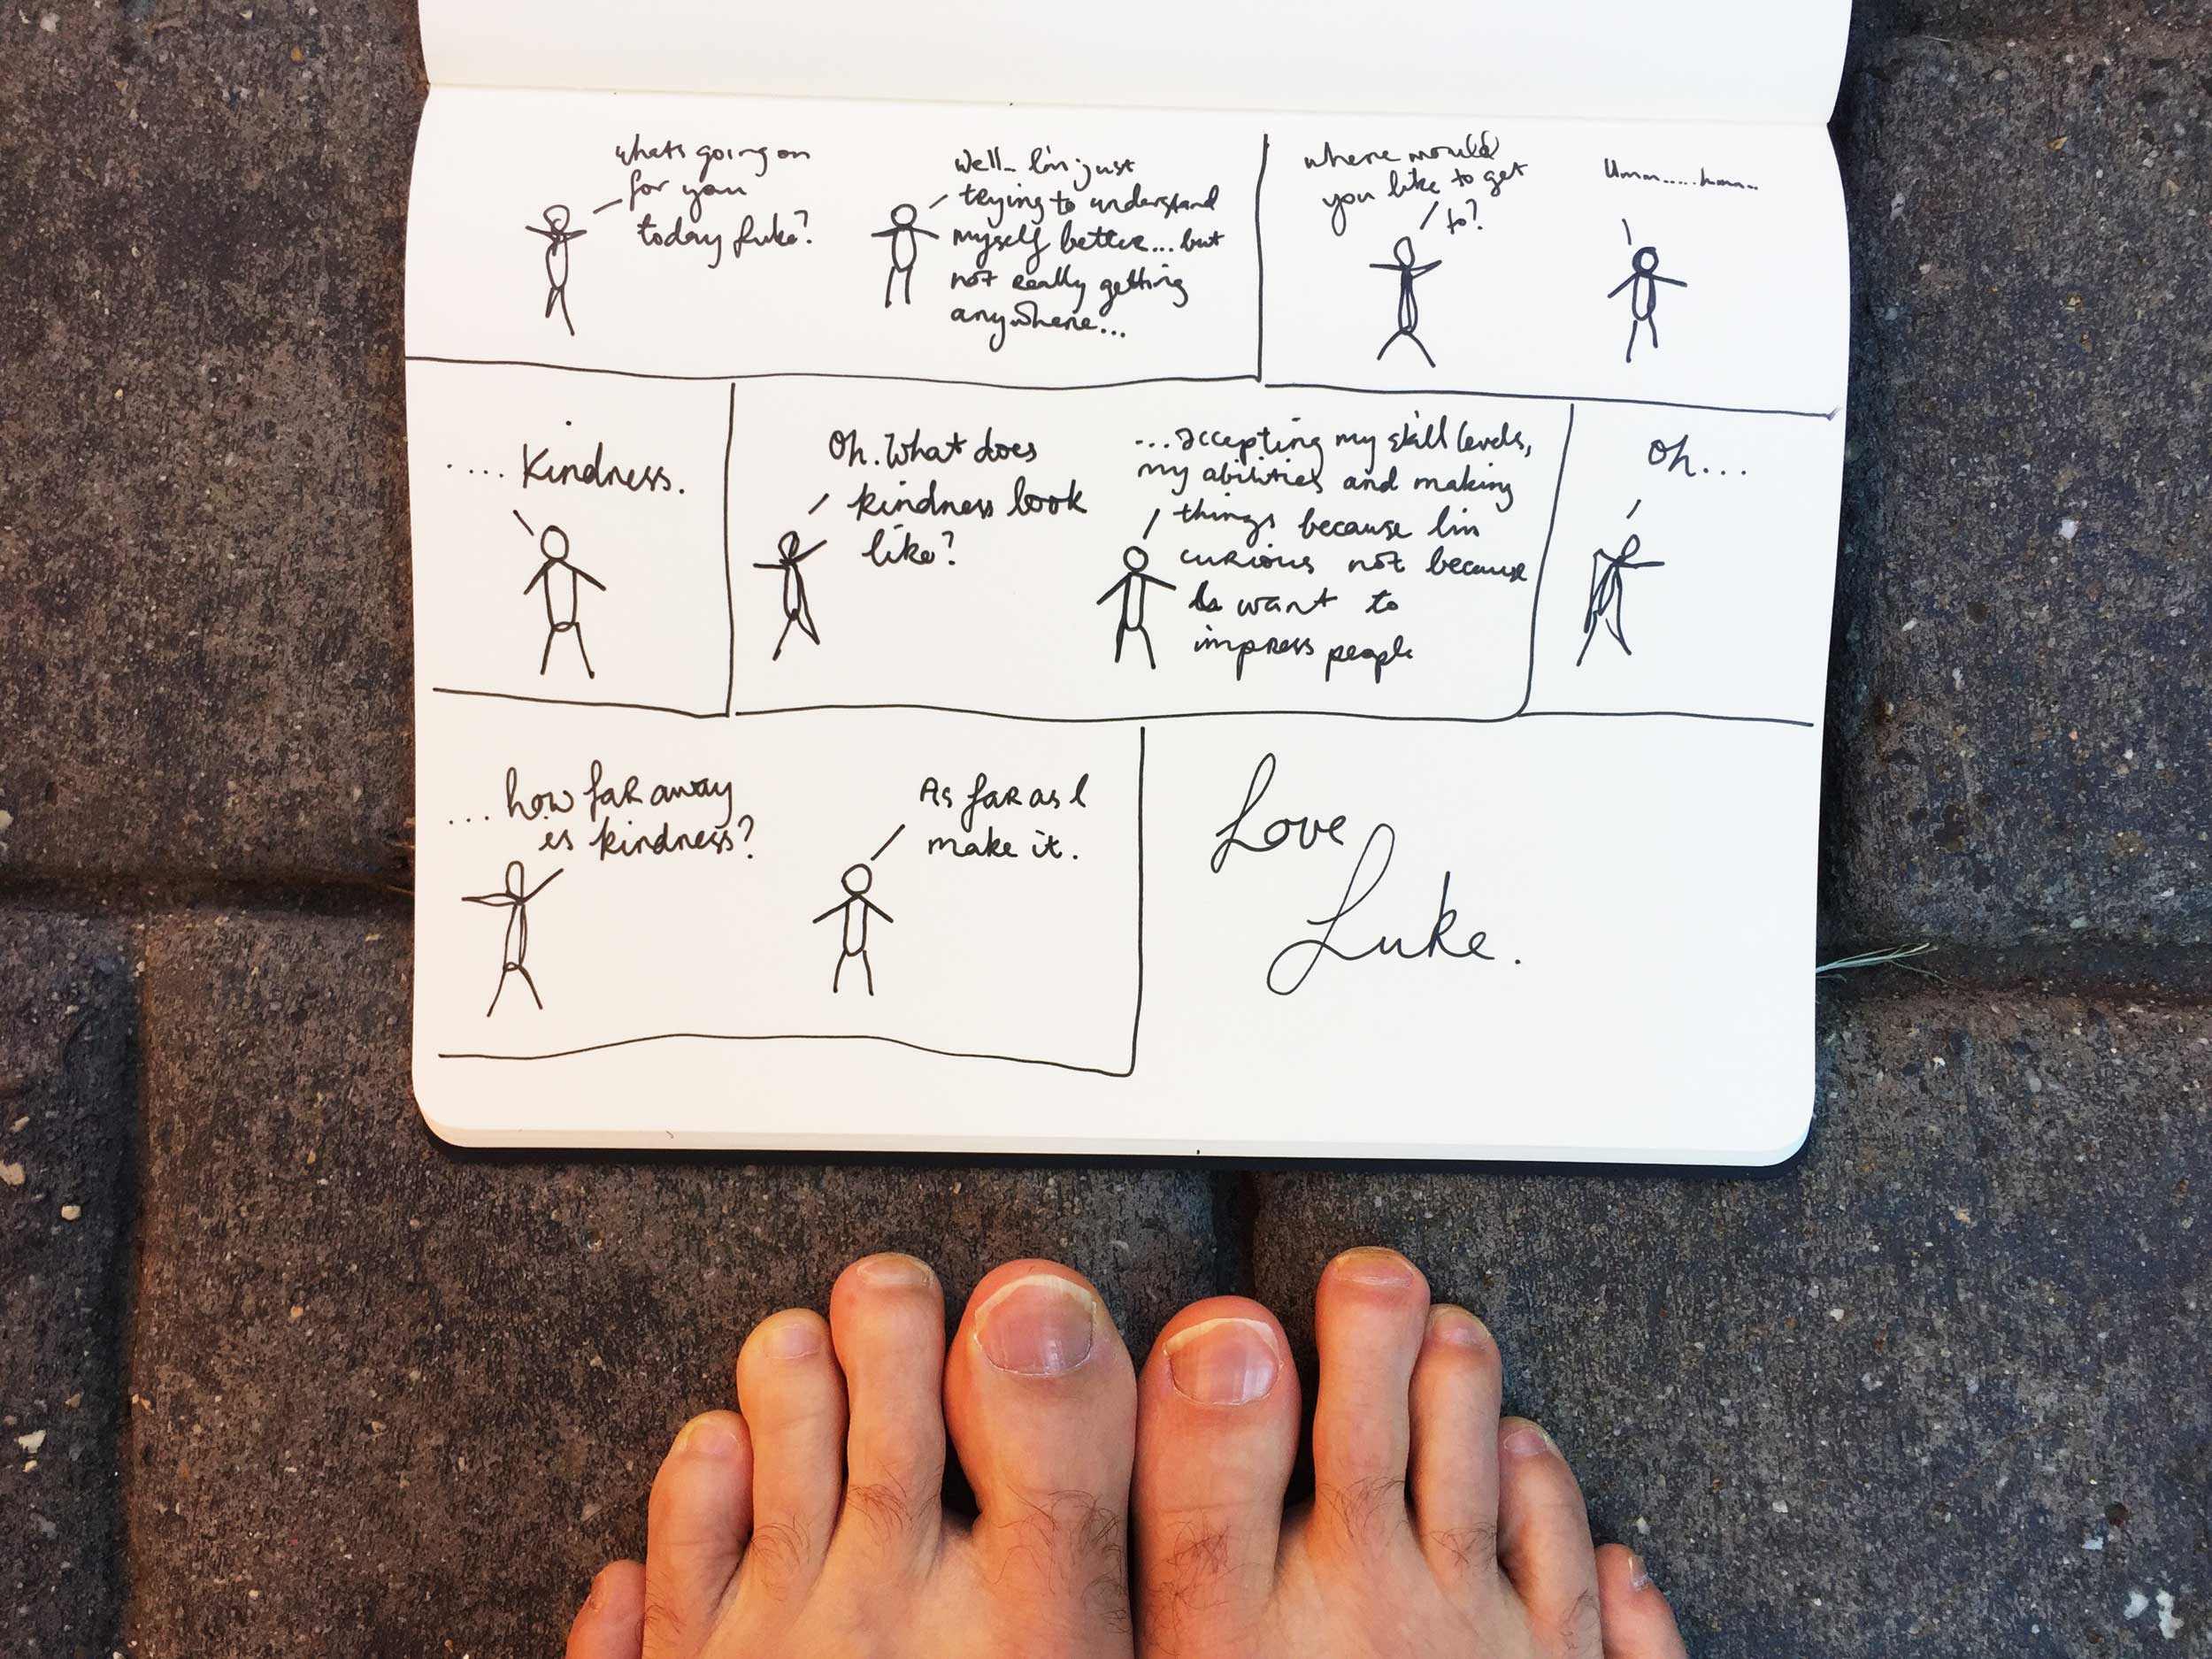 whats going on
for you
today Luke?
Well... I'm just
trying to understand
myself better... but
not really getting
anywhere...
where would
you like to get
to?
Umm.....hmm...
.... Kindness.
Oh. What does
kindness look
like?
...accepting my skill levels,
my abilities and making
things because I'm
curious not because
I want to
impress people
Oh...
... how far away
is kindness?
As far as I
make it.
Love
Luke.